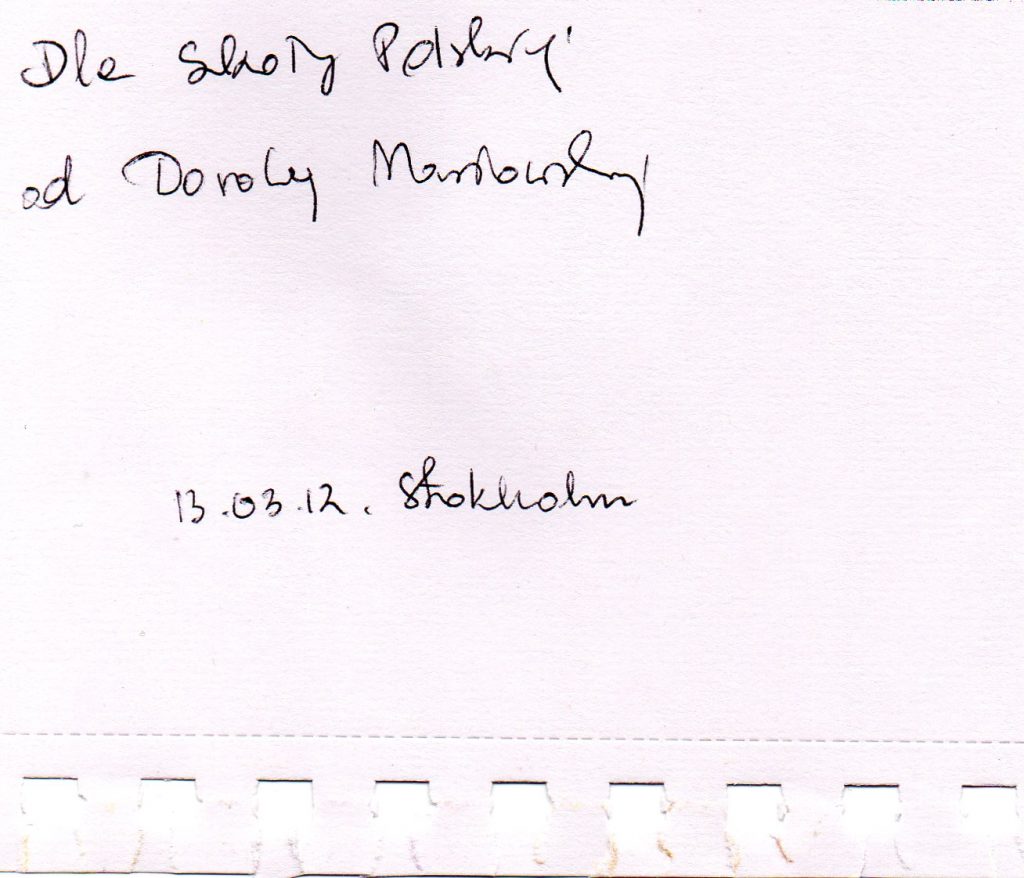 Dla Szkoły Polskiej
od Doroty Masłowskiej
13.03.12. Sztokholm